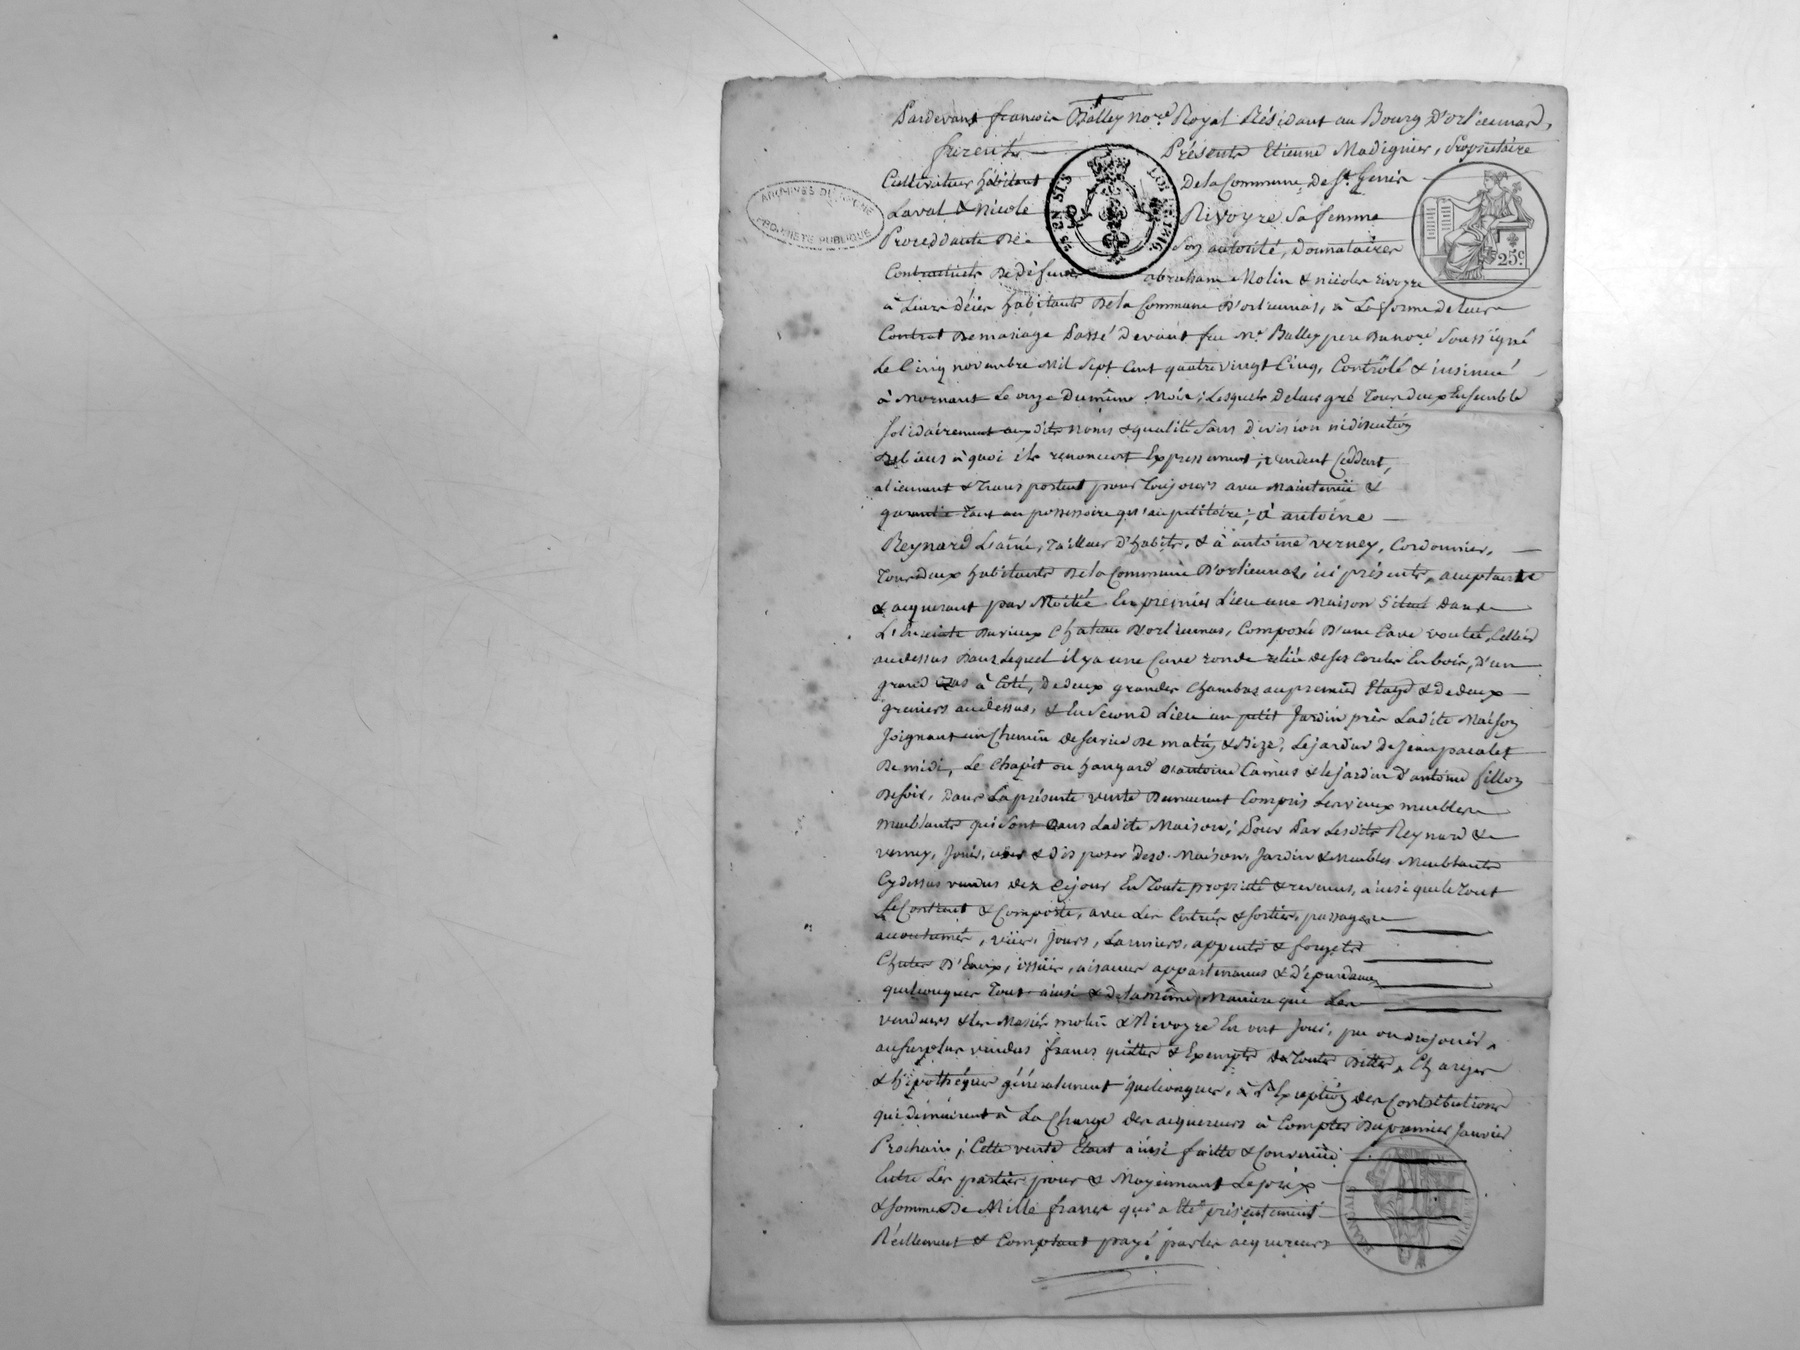 Pardevant francois Balley no.re Royal Résidant au Bourg D'orliennas,
furent Présents Etienne Madignier, Propriétaire
Cultivateur habitant De la Commune de St. Genis
Laval & Nicole Rivoyre Sa femme
Proceddante De Son autorité, Donnataires
Contractuels De Défunts abraham Molin & nicoles rivoyre
à Leurs décès habitants De la Commune D'orliennas, à La forme de leur
Contrat De mariage Passé Devant feu Me. Balley pere Du no.re Soussigné
Le Cinq novembre Mil Sept Cent quatre vingt Cinq, Contrôlé & insinué
à Mornant Le onze Du même Mois; Lesquels De leur gré Tous deux Ensemble
Solidairement aux dits noms & qualité Sans Division ni discution
De biens à quoi ils renoncent Expressement, vendent Ceddent,
alienent & Transportent pour Toujours avec Maintenüe &
garantie Tant au possessoire qu'au petitoire; à antoine
Reynard L'aîné, Tailleur D'habits, & à antoine verney, Cordonnier,
Tous deux habitants De la Commune D'orliennas, ici présents, acceptants
& acquerant par Moitié En premier Lieu une Maison Situé Dans
L'Enceinte Du vieux Chateau D'orliennas, Composée D'une Cave voutée, Cellier
au dessus Dans Lequel il y a une Cuve ronde reliée de ses Cercles En bois, D'un
grand à Coté, De deux grandes Chambres au premier Etage & De deux
greniers au dessus, & En Second Lieu un petit Jardin près Ladite Maison
Joignant un Chemin de Service De matin & Bize, Le jardin De Jean pacalet
De midi, Le Chapit ou hangard D'antoine Camus & le jardin D'antoine fillon
De soir, Dans La présente vente Demeurent Compris Les vieux meubles
meublants qui Sont Dans Ladite Maison; Pour Par Lesdits Reynard &
verney, Jouir, user & Disposer Desd. Maison, Jardin & Meubles Meublants
Cy dessus vendus Dez Cejour En Toute propriété & revenus, ainsi que le Tout
Se Contient & Comporte, avec Les Entrées & sorties, passages
accoutumés, vües, Jours, Larmiers, appents & forgets
Chutes D'Eaux, issües, aisances appartenances & Dépendances
quelconques Tout ainsi & De la même Maniere que Les
vendeurs & les Mariés molin & Rivoyre En ont Joui, pu ou du jouir,
au Surplus vendus francs quittes & Exempts de Toutes Dettes, Charges
& hipothéques généralement quelconques, à L'Exception des Contributions
qui demeurent à La Charge des acquereurs à Compter Du premier Janvier
Prochain; Cette vente Etant ainsi faitte & Convenüe
Entre Les parties pour & Moyennant Le prix
& Somme De Mille francs qui a Eté présentement
Réellement & Comptant payé par les acquereurs
ARCHIVES DU RHONE
PROPRIETE PUBLIQUE
25c